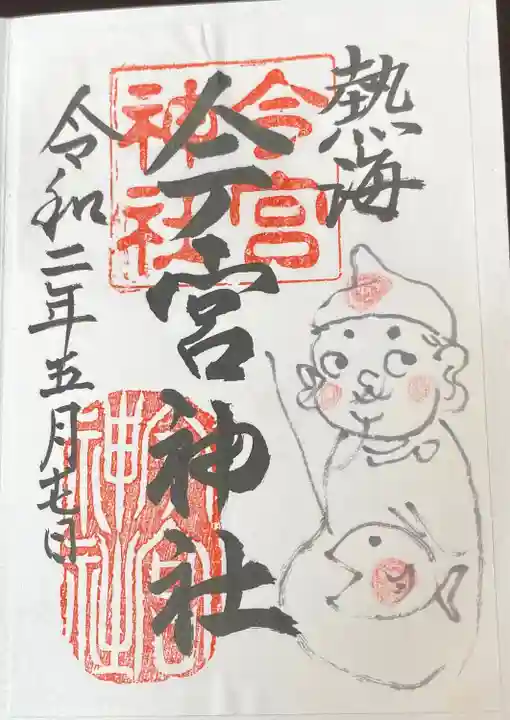 熱海
今宮神社
令和二年五月七日
今宮
神社
今宮
神社